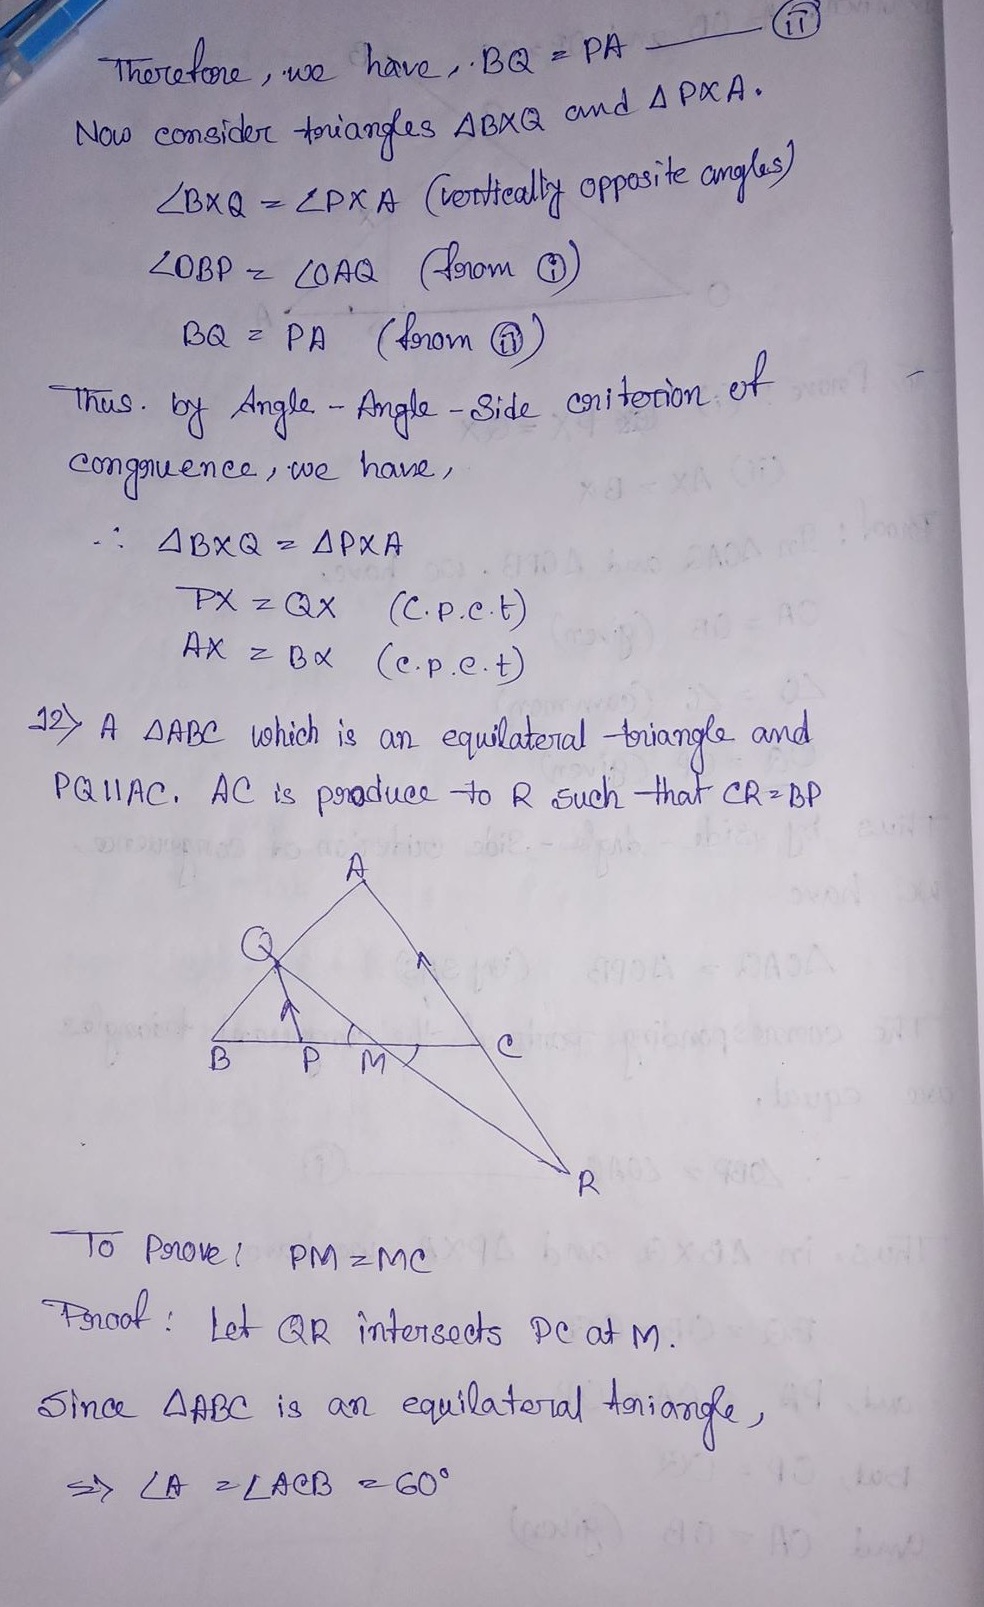 Therefore, we have, BQ = PA —— (ii)
Now consider triangles ΔBXQ and ΔPXA.
∠BXQ = ∠PXA (vertically opposite angles)
∠OBP = ∠OAQ (from (i))
BQ = PA (from (ii))
Thus. by Angle - Angle - Side criterion of
congruence, we have,
∴ ΔBXQ = ΔPXA
PX = QX (C.p.c.t)
AX = BX (c.p.c.t)
12> A ΔABC which is an equilateral triangle and
PQ||AC. AC is produce to R such that CR=BP
A
Q
B P M C
R
To Prove: PM=MC
Proof: Let QR intersects PC at M.
Since ΔABC is an equilateral triangle,
=> ∠A = ∠ACB = 60°